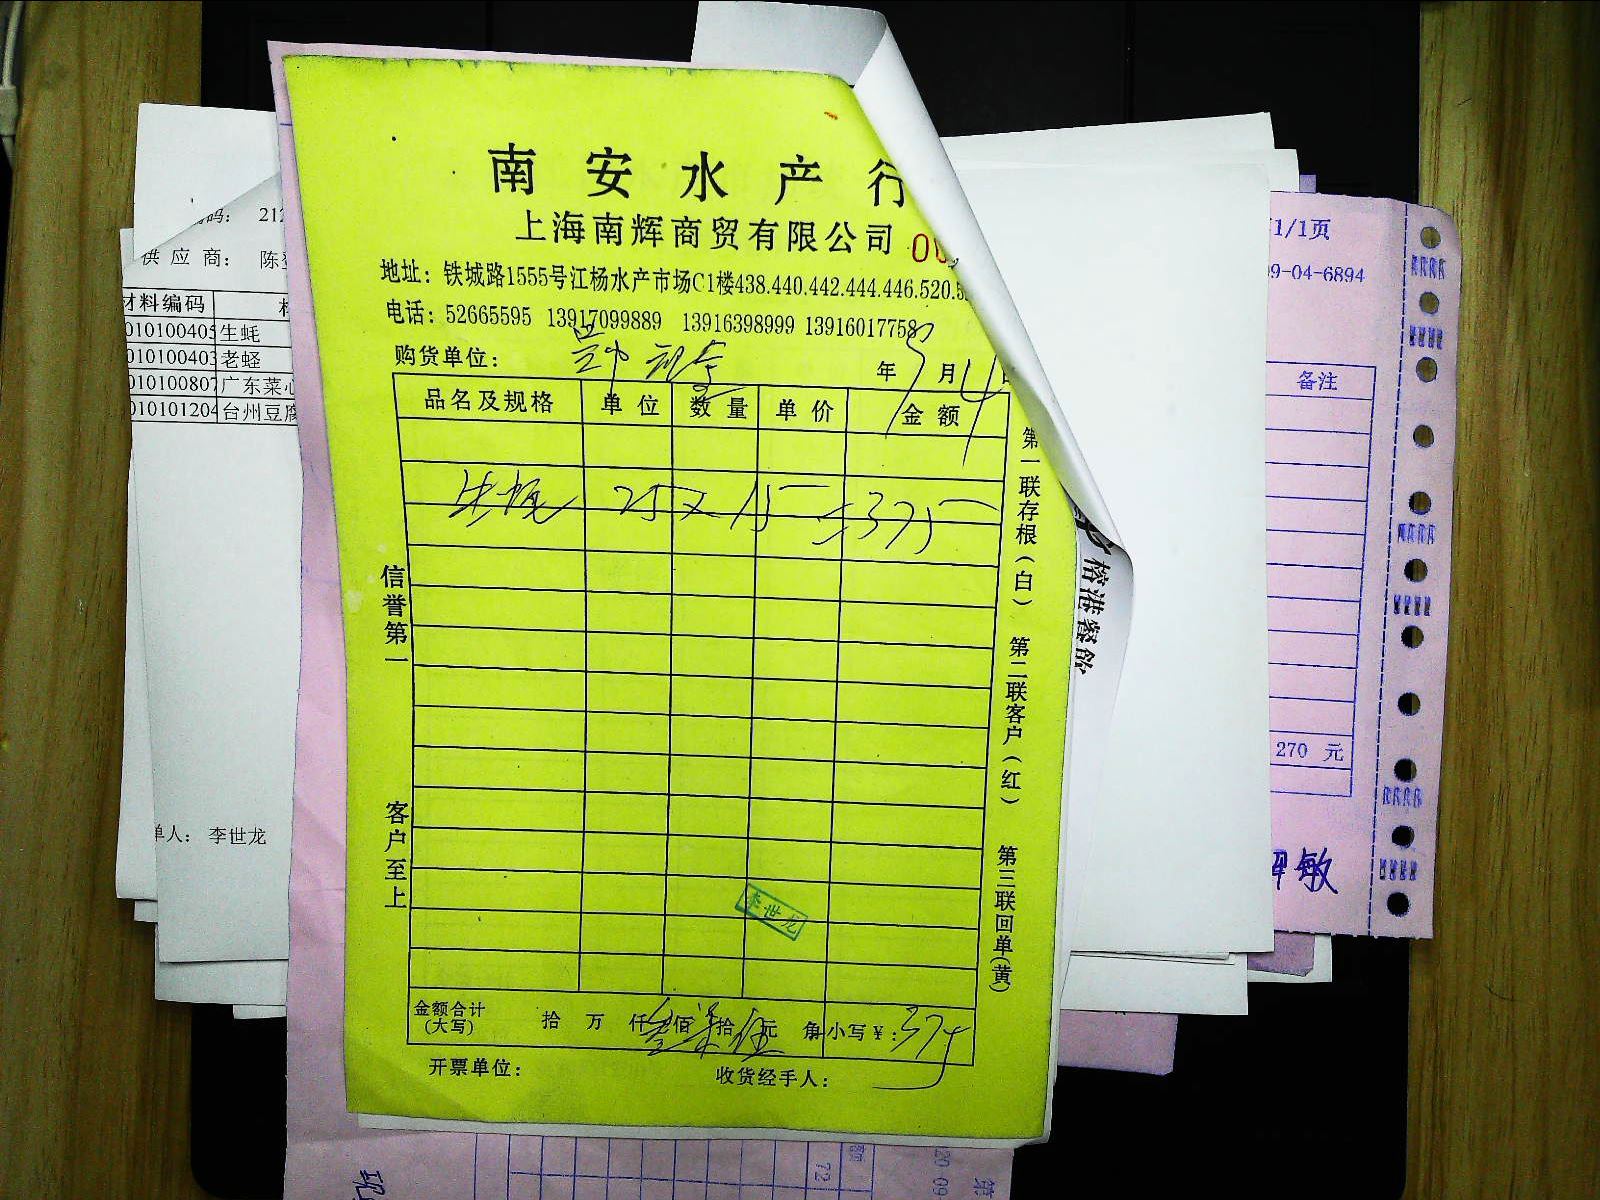 南安水产行
上海南辉商贸有限公司
00
地址：铁城路1555号江杨水产市场C1楼438.440.442.444.446.520.5
电话：52665595 13917099889 13916398999 13916017758
购货单位：
年 月4
品名及规格 单位 数量 单价 金额
生蚝 25 15 375
信誉第一
客户至上
第一联存根（白） 第二联客户（红） 第三联回单（黄）
李世龙
金额合计（大写） 拾 万 仟叁佰柒拾伍元 角 小写￥：375
开票单位：
收货经手人：
码： 212
供应商： 陈
材料编码
010100405 生蚝
010100403 老蛏
010100807 广东菜心
010101204 台州豆腐
单人： 李世龙
榕港餐飲
1/1页
9-04-6894
备注
270 元
敏
72
额
20-09
第
现